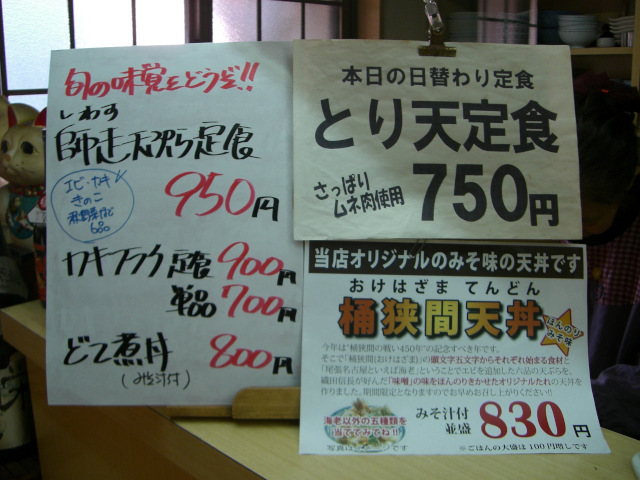 旬の味覚をどうぞ!!
しわす
師走天ぷら定食
950円
エビ・カキ
きのこ
カキフライ定食900円
単品700円
どて煮丼 800円
(みそ汁付)
本日の日替わり定食
とり天定食
さっぱり
ムネ肉使用
750円
当店オリジナルのみそ味の天丼です
おけはざま てんどん
桶狭間天丼
ほんのり
みそ味
今年は"桶狭間の戦い450年"の記念すべき年です。
そこで「桶狭間(おけはざま)」の頭文字五文字からそれぞれ始まる食材と
「尾張名古屋といえば海老」ということでエビを追加した六品の天ぷらを、
織田信長が好んだ「味噌」の味をほんのりきかせたオリジナルたれの天丼を
作りました。期間限定となりますのでお早めお召し上がりください!!
海老以外の五種類を
当ててみてね!!
写真はイメージです
みそ汁付
並盛 830円
※ごはんの大盛は100円増しです